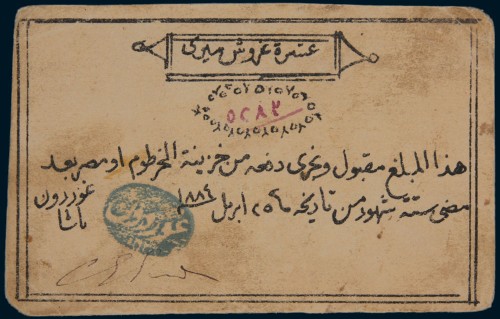 عشرة غروش ميرى
٥٢٨٢
هذا المبلغ مقبول ونجرى دفعه من خزينة الخرطوم او مصر بعد
مضى ستة شهور من تاريخه ٢٥ ابريل ١٨٨٤
غوردون
باشا